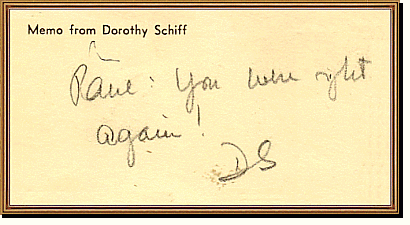 Memo from Dorothy Schiff
Paul: You were right
again!
DS